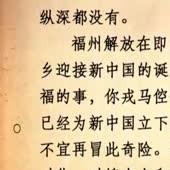 纵深都没有。
福州解放在即
乡迎接新中国的诞
福的事，你戎马倥
已经为新中国立下
不宜再冒此奇险。